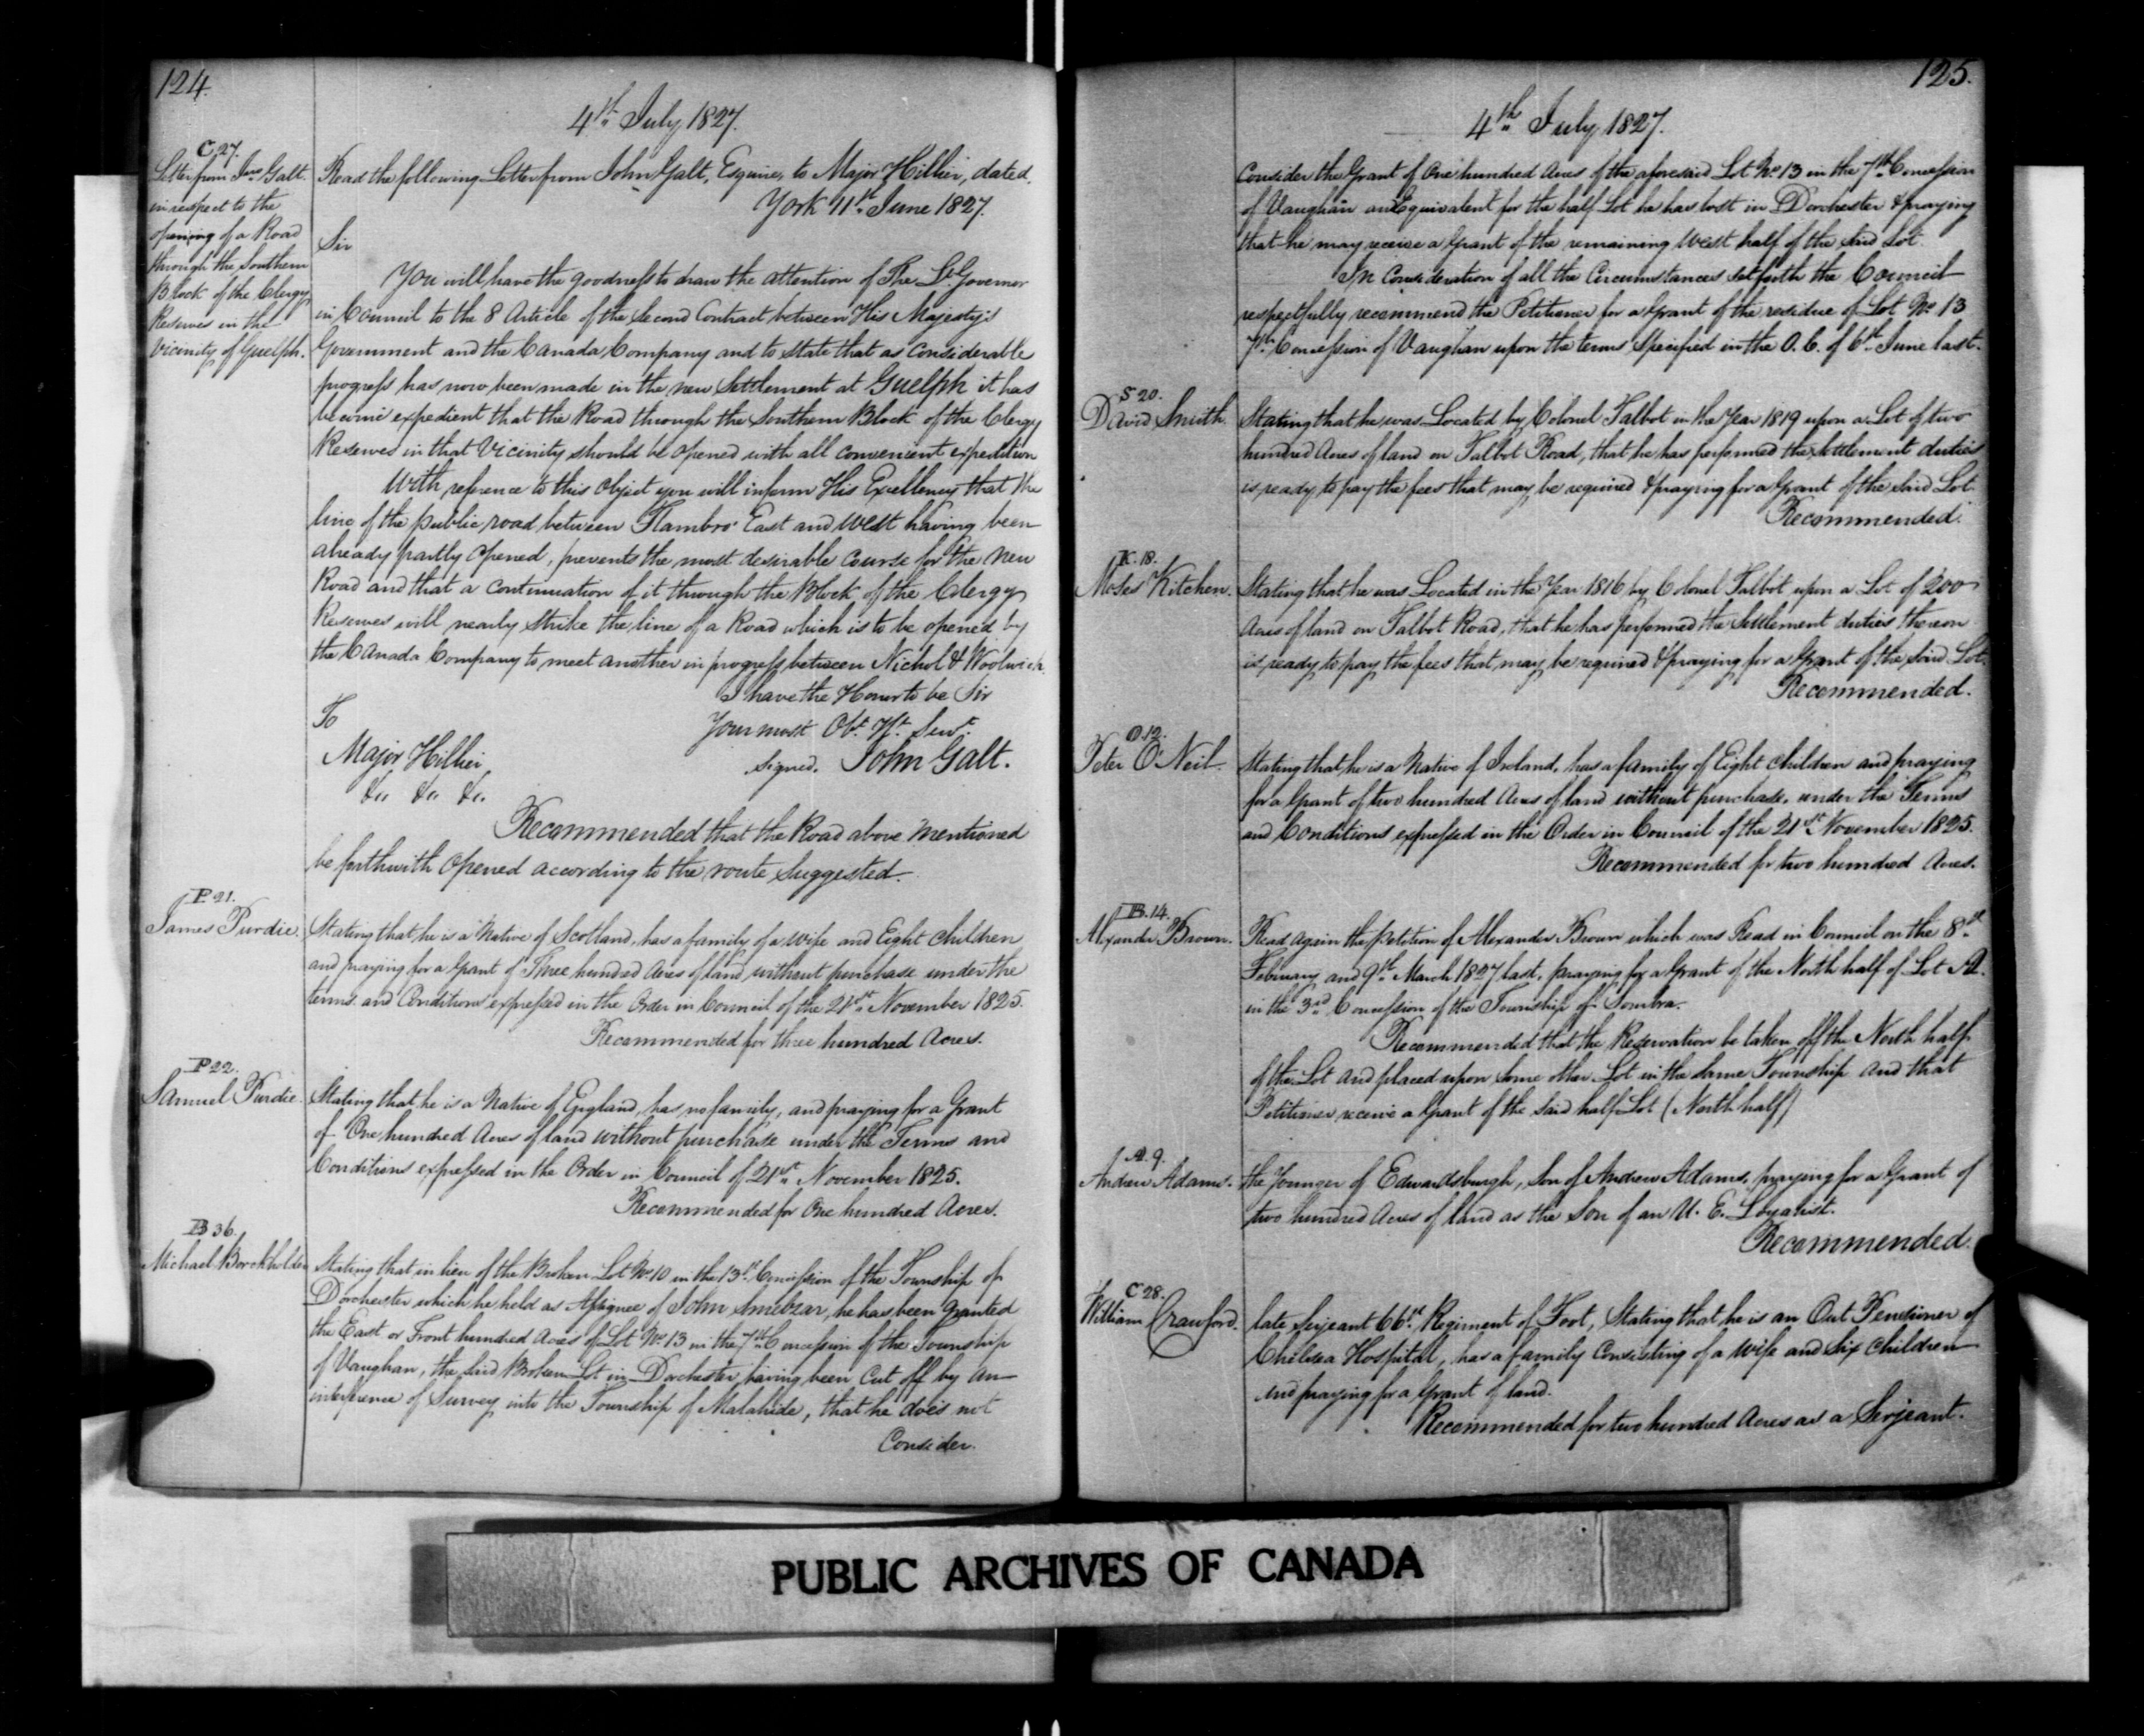 124.
4th July 1827.
C 27.
Letter from Jno Galt
in respect to the
opening of a Road
through the Southern
Block of the Clergy
Reserves in the
vicinity of Guelph.
Read the following Letter from John Galt, Esquire, to Major Hillier, dated,
York 11th June 1827.
Sir
You will have the goodness to draw the attention of The Lt Governor
in Council to the 8 Article of the Second Contract between His Majesty's
Government and the Canada Company and to state that as Considerable
progress has now been made in the new Settlement at Guelph it has
become expedient that the Road through the Southern Block of the Clergy
Reserves in that Vicinity should be opened with all convenient expedition
With reference to this object you will inform His Excellency that the
line of the public road between Flambro' East and West having been
already partly opened, prevents the most desirable course for the new
Road and that a continuation of it through the Block of the Clergy
Reserves will nearly strike the line of a Road which is to be opened by
the Canada Company to meet another in progress between Nichol & Woolwich.
I have the Honour to be Sir
Your most Obt Ht Servt
signed. John Galt.
To
Major Hillier
&c &c &c.
Recommended that the Road above mentioned
be forthwith opened according to the route suggested.
P 21.
James Purdie.
Stating that he is a Native of Scotland, has a family of a wife and Eight children
and praying for a Grant of Three hundred Acres of land without purchase under the
terms and Conditions expressed in the Order in Council of the 21st November 1825.
Recommended for three hundred Acres.
P 22.
Samuel Purdie
Stating that he is a Native of England, has no family, and praying for a Grant
of One hundred Acres of land without purchase under the Terms and
Conditions expressed in the Order in Council of 21st November 1825.
Recommended for One hundred Acres.
B 36.
Michael Borckholder
Stating that in lieu of the Broken Lot No 10 in the 13th Concession of the Township of
Dorchester which he held as Assignee of John Smelzar, he has been granted
the East or Front hundred Acres of Lot No 13 in the 7th Concession of the Township
of Vaughan, the said Broken Lot in Dorchester having been cut off by an
interference of Survey into the Township of Malahide, that he does not
Consider.
125.
4th July 1827.
Consider the Grant of One hundred Acres of the aforesaid Lot No 13 in the 7th Concession
of Vaughan an Equivalent for the half Lot he has lost in Dorchester & praying
that he may receive a Grant of the remaining West half of the said Lot.
In Consideration of all the Circumstances set forth the Council
respectfully recommend the Petitioner for a Grant of the residue of Lot No 13
7th Concession of Vaughan upon the terms specified in the O. C. of 6th June last.
S 20.
David Smith.
Stating that he was Located by Colonel Talbot in the Year 1819 upon a Lot of two
hundred Acres of land on Talbot Road, that he has performed the settlement duties
is ready to pay the fees that may be required & praying for a Grant of the said Lot.
Recommended.
K. 18.
Moses Kitchen.
Stating that he was Located in the Year 1816 by Colonel Talbot upon a Lot of 200
Acres of land on Talbot Road, that he has performed the Settlement duties thereon
is ready to pay the fees that may be required & praying for a Grant of the said Lot.
Recommended.
O. 12.
Peter O'Neil.
Stating that he is a Native of Ireland, has a family of Eight children and praying
for a Grant of two hundred Acres of land without purchase, under the Terms
and Conditions expressed in the Order in Council of the 21st November 1825.
Recommended for two hundred Acres.
B. 14.
Alexander Brown.
Read again the petition of Alexander Brown which was Read in Council on the 8th
February and 9th March 1827 last, praying for a Grant of the North half of Lot A.
in the 3rd Concession of the Township of Sombra.
Recommended that the Reservation be taken off the North half
of the Lot and placed upon some other Lot in the same Township and that
Petitioner receive a Grant of the said half Lot (North half)
A. 9.
Andrew Adams.
the Younger of Edwardsburgh, Son of Andrew Adams, praying for a Grant of
two hundred Acres of land as the Son of an U. E. Loyalist.
Recommended.
C 28.
William Crawford.
late Serjeant 66th Regiment of Foot, Stating that he is an Out Pensioner of
Chelsea Hospital, has a family Consisting of a wife and six children
and praying for a Grant of land.
Recommended for two hundred Acres as a Serjeant.
PUBLIC ARCHIVES OF CANADA